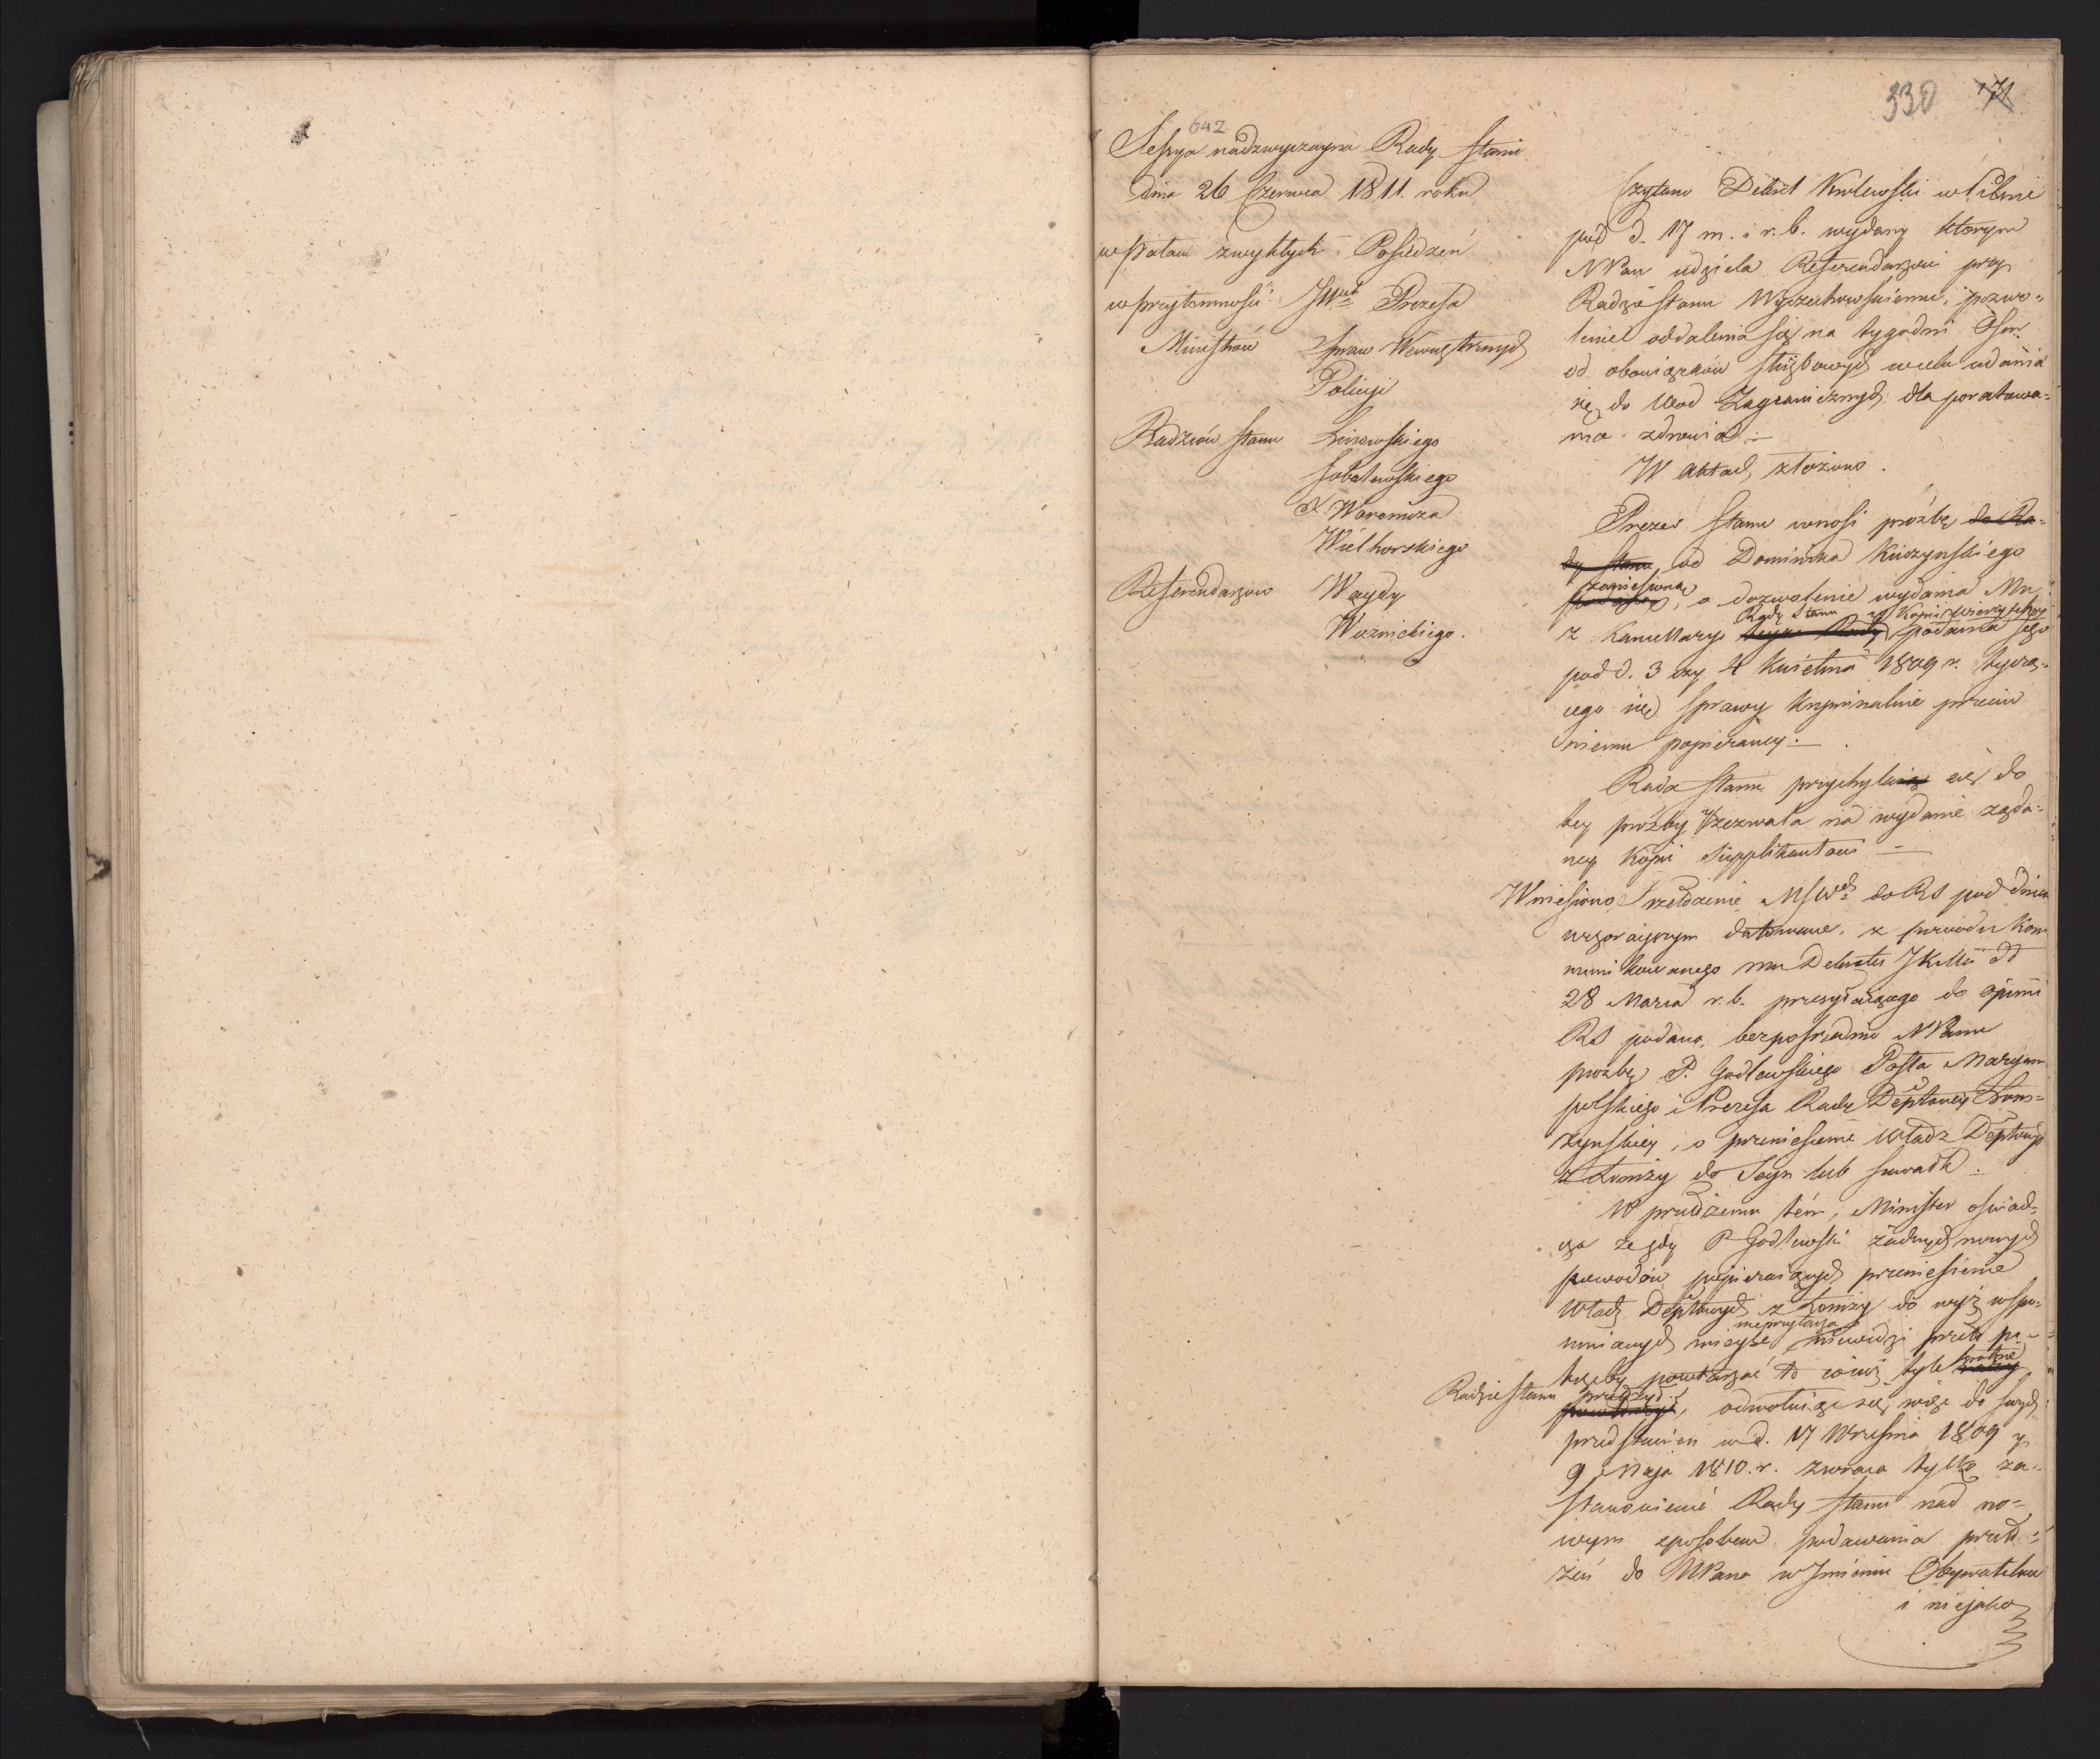 330 171
642
Sessya nadzwyczayna Rady Stanu
dnia 26 Czerwca 1811. roku
w Pałacu zwykłych Posiedzeń
w przytomności JWch Prezesa
Ministrów Spraw Wewnętrznych
Policyi
Radzców Stanu Linowskiego
Sobolewskiego
X. Woronicza
Wielhorskiego
Referendarzow Woydy
Woznickiego.
Czytano Dekret Krolewski w Pilnie
pod d. 17 m. i r. b. wydany którym
NPan udziela Referendarzowi przy
Radzie Stanu Wyczechowskiemu, pozwo=
lenie oddalenia się na tygodni Ośm
od obowiązków służbowych w celu udania
się do Wod Zagranicznych dla poratowa=
nia zdrowia.
W Aktach złożono.
Prezes Stanu wnosi prożbę do Ra=
dy Stanu, od Dominika Kuczynskiego
zaniesioną
, o dozwolenie wydania Mu
Rady Stanu Kopii wierzytelney
z Kancellaryi teyże Rady podania jego
pod d. 3 czy 4 Kwietnia 1809 r. tyczą=
cego się Sprawy Kryminalnie przeciw
niemu popieraney.
Rada Stanu przychylaiąc się do
tey prożby zezwala na wydanie żąda=
ney Kopii Supplikantowi
Wniesiono Przełożenie MSWch do RS pod dniem
wczorayszym datowane, z powodu Kom
munikowanego mu Dekretu JKMci dd
28 Marca r. b. przesyłaiącego do opinii
RS podaną bezpośrednio NPanu
prożbę P. Godlewskiego Posła Maryam
polskiego i Prezesa Rady Deptowey Łom=
żyńskiey, o przeniesienie Władz Deptowych
z Łomży do Seyn lub Suwałk.
W przełożeniu tém, Minister oświad=
cza że gdy P Godlewski żadnych nowych
powodów popieraiących przeniesienie
Władz Deptowych z Łomży do wyż wspo=
nieprzytacza
mnianych mieysc, niewidzi przeto po=
trzeby powtarzać to co iuż tyle krotnie
Radzie Stanu przełożył
, odwołuiąc się więc do swych
przedstawień z d. 17 Września 1809 y
9 Maja 1810. r. zwraca tylko za=
stanowienie Rady Stanu nad no=
wym sposobem podawania przeło=
żeń do NPana w Imieniu Obywatelów
i niejako